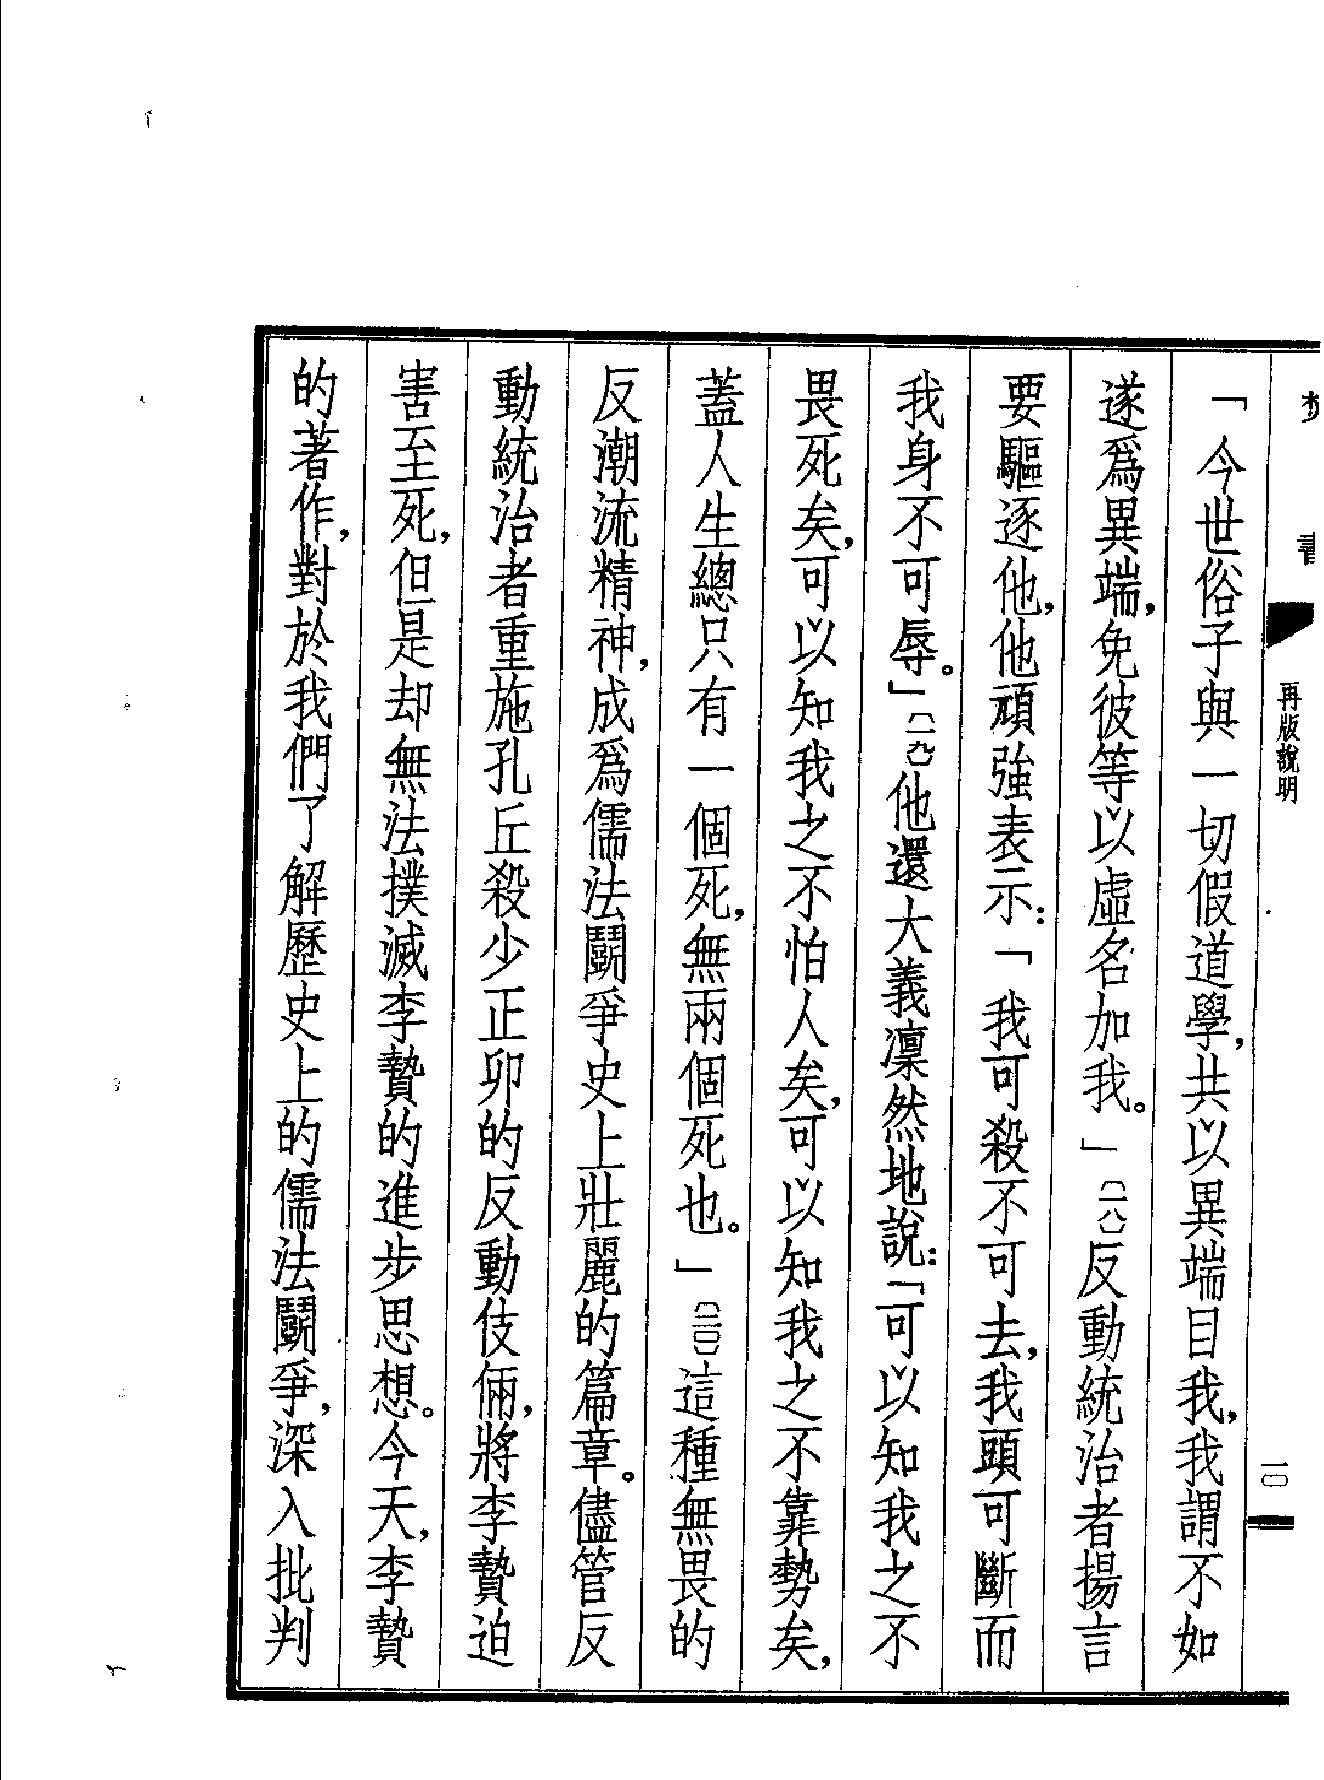 書
再版說明
一〇
「今世俗子與一切假道學，共以異端目我，我謂不如
遂爲異端，免彼等以虛名加我。」〔一八〕反動統治者揚言
要驅逐他，他頑強表示：「我可殺不可去，我頭可斷而
我身不可辱。」〔一九〕他還大義凜然地說：「可以知我之不
畏死矣，可以知我之不怕人矣，可以知我之不靠勢矣，
蓋人生總只有一個死，無兩個死也。」〔二〇〕這種無畏的
反潮流精神，成爲儒法鬬爭史上壯麗的篇章。儘管反
動統治者重施孔丘殺少正卯的反動伎倆，將李贄迫
害至死，但是却無法撲滅李贄的進步思想。今天，李贄
的著作，對於我們了解歷史上的儒法鬬爭，深入批判